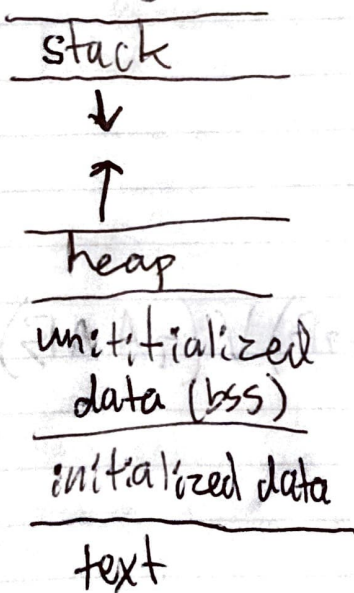 stack
↓
↑
heap
unititialized
data (bss)
initialized data
text